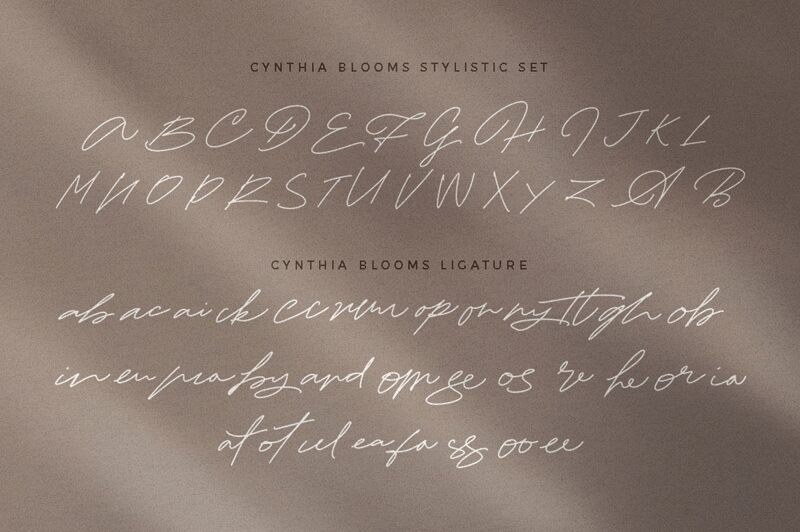 CYNTHIA BLOOMS STYLISTIC SET
A B C D E F G H I J K L
M N O P R S T U V W X Y Z A B
CYNTHIA BLOOMS LIGATURE
ab ac ai ck cc rr um op on ny tt gh ob
in en pro by and om ge os re he or io
at ot ul ea fo ss oo ee